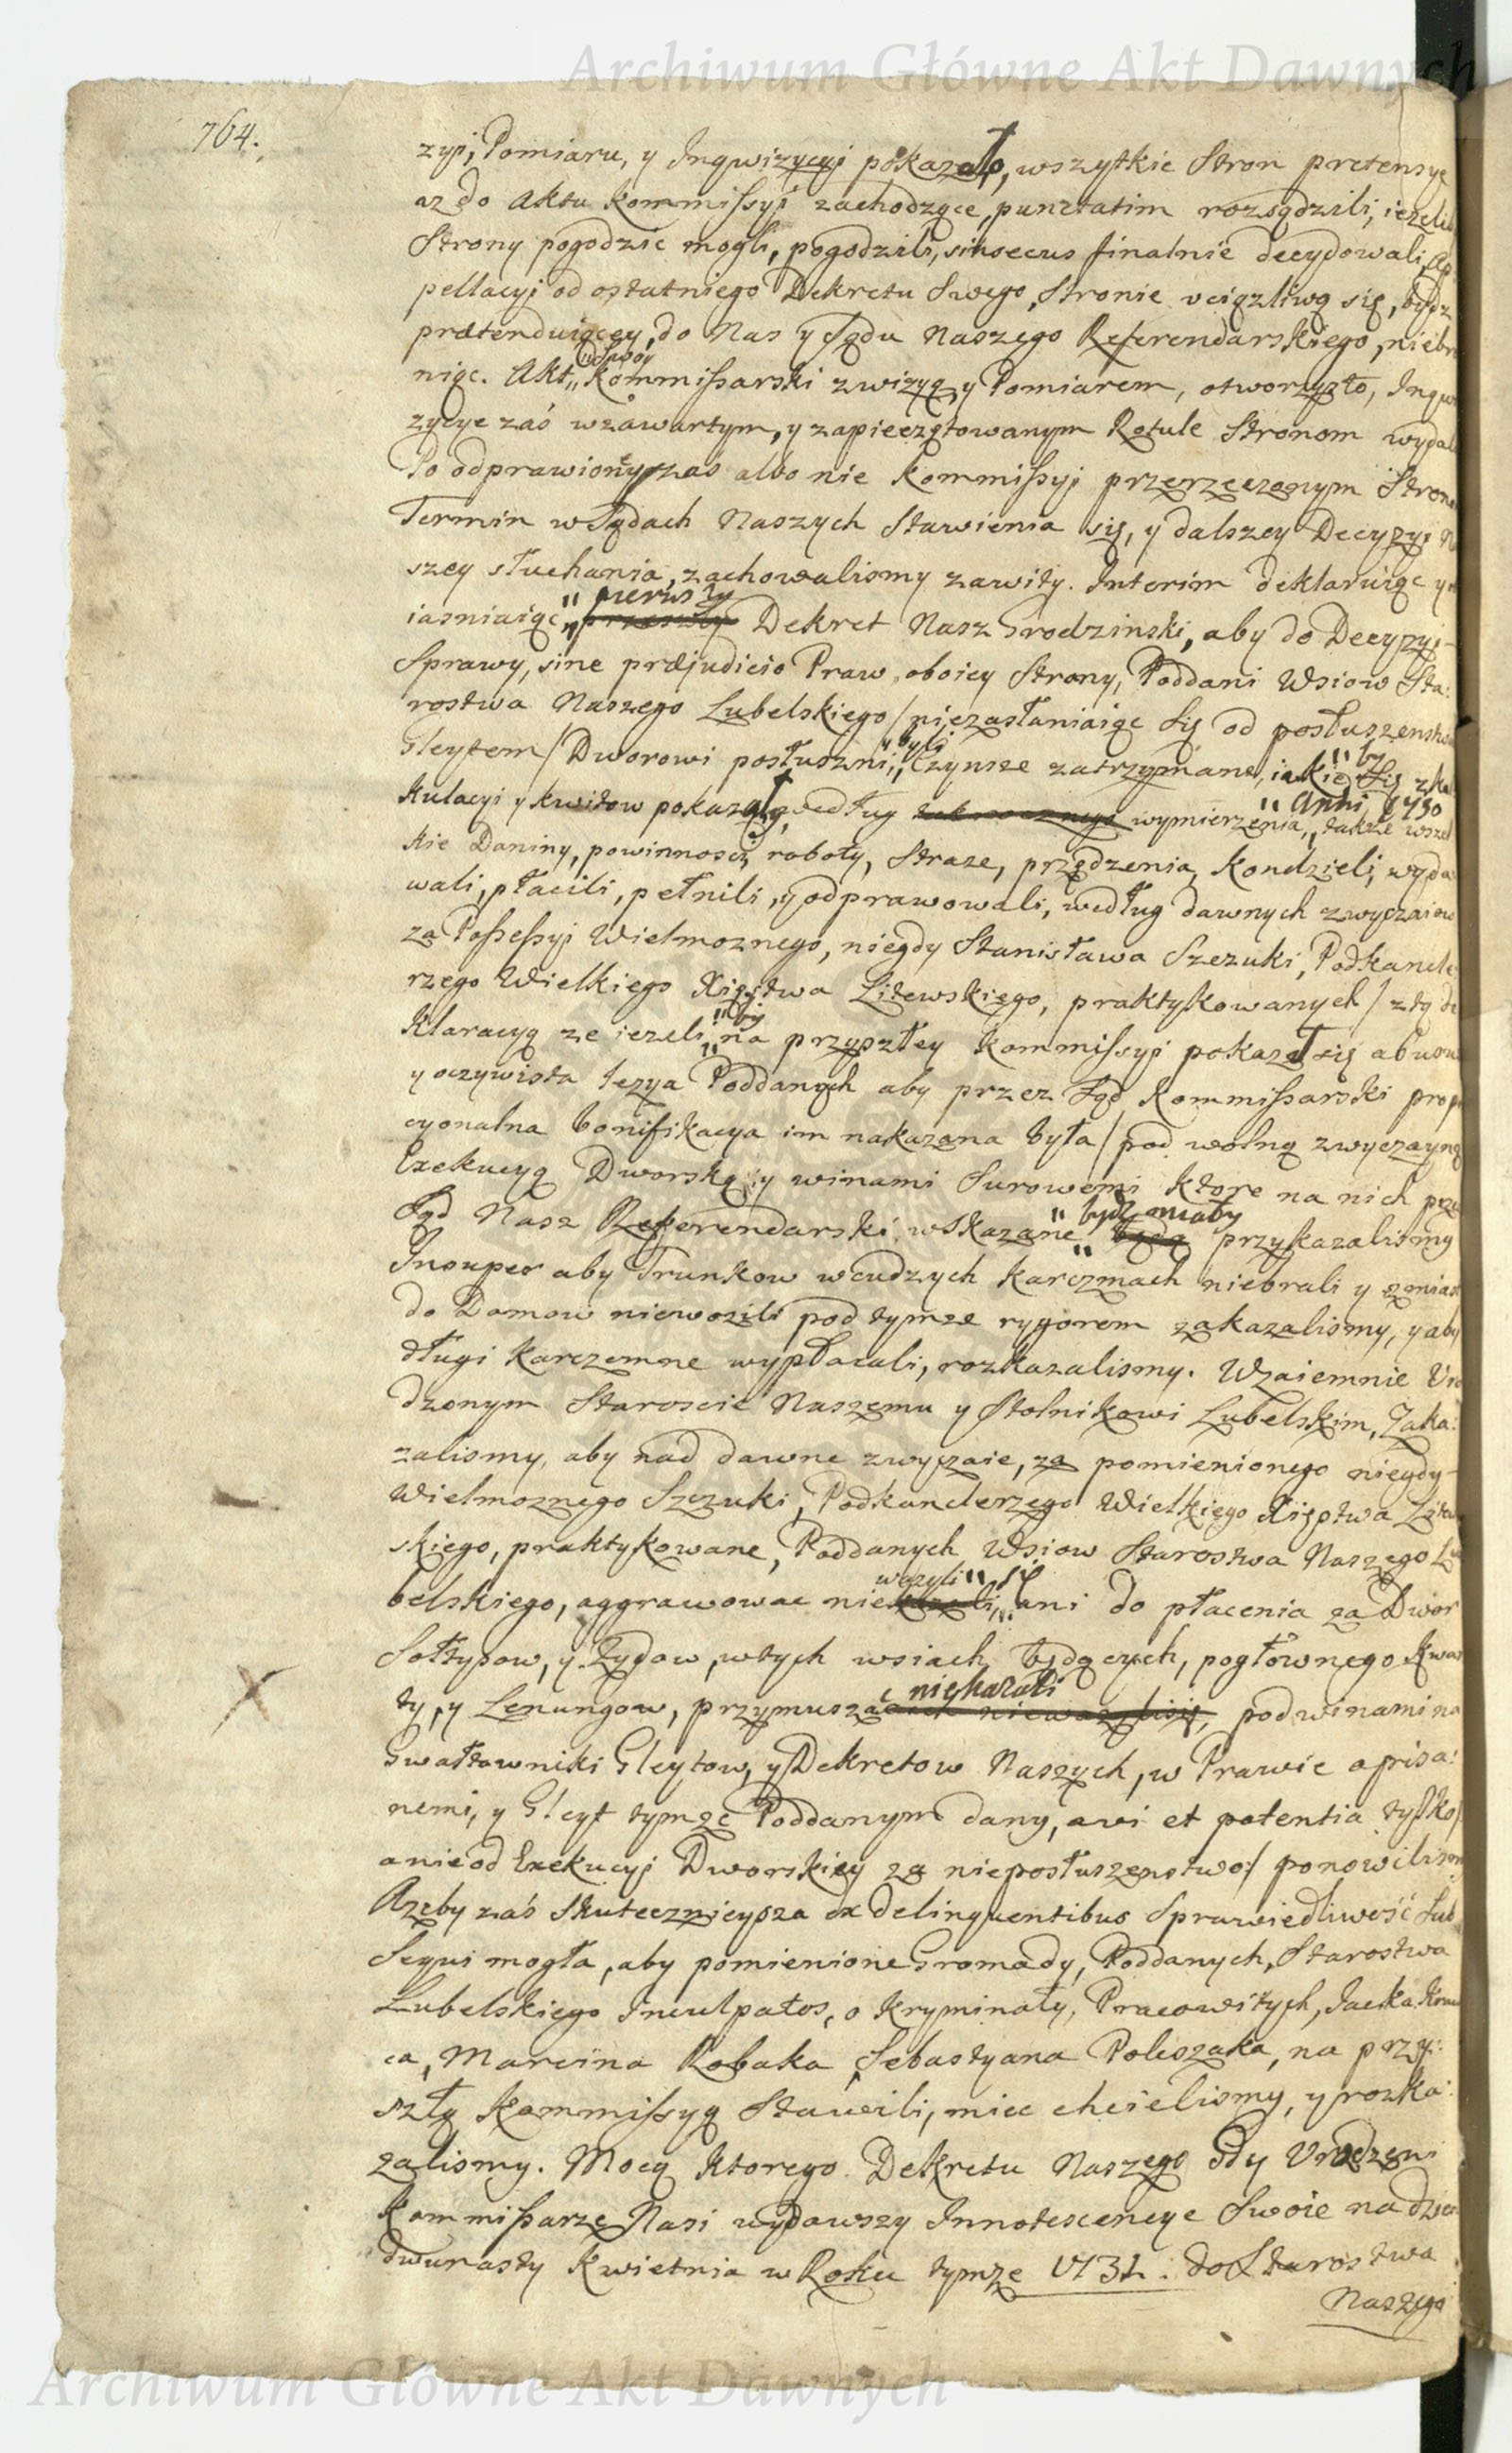 Archiwum Główne Akt Dawnych
764.
zyi, Pomiaru, y Inqwizycyi pokazało, wszytkie Stron pretensye
az do Aktu Kommissyi zachodzące, punctatim rozsądzili, ieżeliby
Strony pogodzic mogli, pogodzili, sin secus finalnie decydowali, Ap
pellacyi od ostatniego Dekretu Swego, Stronie vciązliwą się, bydz
prætenduiącey, do Nas y Sądu Naszego Referendarskiego, niebro
niąc. Akt „ Swoy Kommissarski z wizyą, y Pomiarem, otworzysto, Inqwi
zycye zaś w zawartym, y zapieczętowanym Rotule Stronom wydali
Po odprawioney zas albo nie Kommissyi przerzeczonym Stronom
Termin w Sądach Naszych Stawienia się, y dalszey Decyzyi Na
szey słuchania, zachowalismy zawity. Interim deklaruiąc y
iasniaiąc „ pierwszy przeszły Dekret Nasz Grodzinski, aby do Decyzyi
Sprawy, sine præjudicio Praw, oboiey Strony, Poddani Wsiow Sta:
rostwa Naszego Lubelskiego / niezasłaniaiąc Się od posłuszenstwa
Gleytem / Dworowi posłuszni „ byli, Czynsze zatrzymane, iakie „ by Się z Kal
kulacyi y kwitow pokazały, według tak rocznego wymierzenia, „ Anni 1730 także wszel
kie Daniny, powinnosci, roboty, Straze, przędzenia, Kondzieli, wyda
wali, płacili, pełnili, y odprawowali, według dawnych zwyczaiow
za Possessyi Wielmoznego, niegdy Stanisława Szczuki, Podkancle
rzego Wielkiego Xięstwa Litewskiego, praktykowanych / z tą de
klaracyą ze ieżeli „ by na przyszłey Kommissyi pokazał się abusus
y oczywista lezya Poddanych aby przez Sąd Kommissarski propor
cyonalna bonifikacya im nakazana była / pod wolną zwyczayną
Exekucyą Dworską y winami Surowemi ktore na nich przez
Sąd Nasz Referendarski, wskazane „ bydz miały będą przykazalismy
Insuper aby Trunkow w cudzych karczmach niebrali y z miast
do Domow niewozili pod tymze rygorem zakazalismy, y aby
długi karczemne wypłacali, rozkazalismy. Wzaiemnie Uro
dzonym Staroscie Naszemu y Stolnikowi Lubelskim, Zaka:
zalismy, aby nad dawne zwyczaie, za pomienionego niegdy
Wielmoznego Szczuki, Podkanclerzego Wielkiego Xięstwa Litew
skiego, praktykowane, Poddanych Wsiow Starostwa Naszego Lu
belskiego, aggrawowac nie wazyli „ się, ani do płacenia za Dwor
Sołtysow, y Zydow, w tych wsiach będących, pogłownego Kwar
ty, y Lenungow, przymuszać niekazali niewazyli się, pod winami na
Gwałtowniki Gleytow, y Dekretow Naszych, w Prawie opisa:
nemi, y Gleyt tymze Poddanym dany, a vi et potentia tylko /
a nie od Exekucyi Dworskiey za nieposłuszenstwo / ponowilismy
Azeby zaś skutecznieysza ex delinquentibus Sprawiedliwość Sub
sequi mogła, aby pomienione Gromady, Poddanych, Starostwa
Lubelskiego Inculpatos, o kryminały, Pracowitych, Jacka Kraw
ca, Marcina Robaka, Sebastyana Poleszaka, na przy:
szłą Kommissyą Stawili, miec chcielismy, y rozka:
zalismy. Mocą ktorego Dekretu Naszego Gdy Vrodzeni
Kommissarze Nasi wydawszy Innotescencye Swoie na dzien
dwunasty Kwietnia w Roku tymze 1731. do Starostwa
Naszego
Archiwum Główne Akt Dawnych